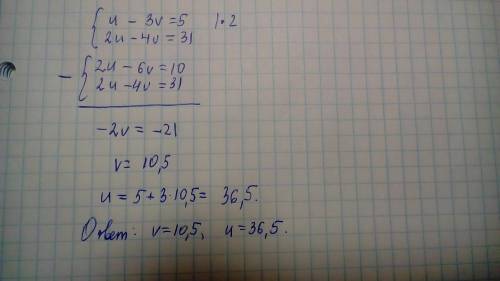 { u - 3v = 5 | · 2
{ 2u - 4v = 31
- { 2u - 6v = 10
{ 2u - 4v = 31
-2v = -21
v = 10,5
u = 5 + 3·10,5 = 36,5.
Ответ: v = 10,5, u = 36,5.